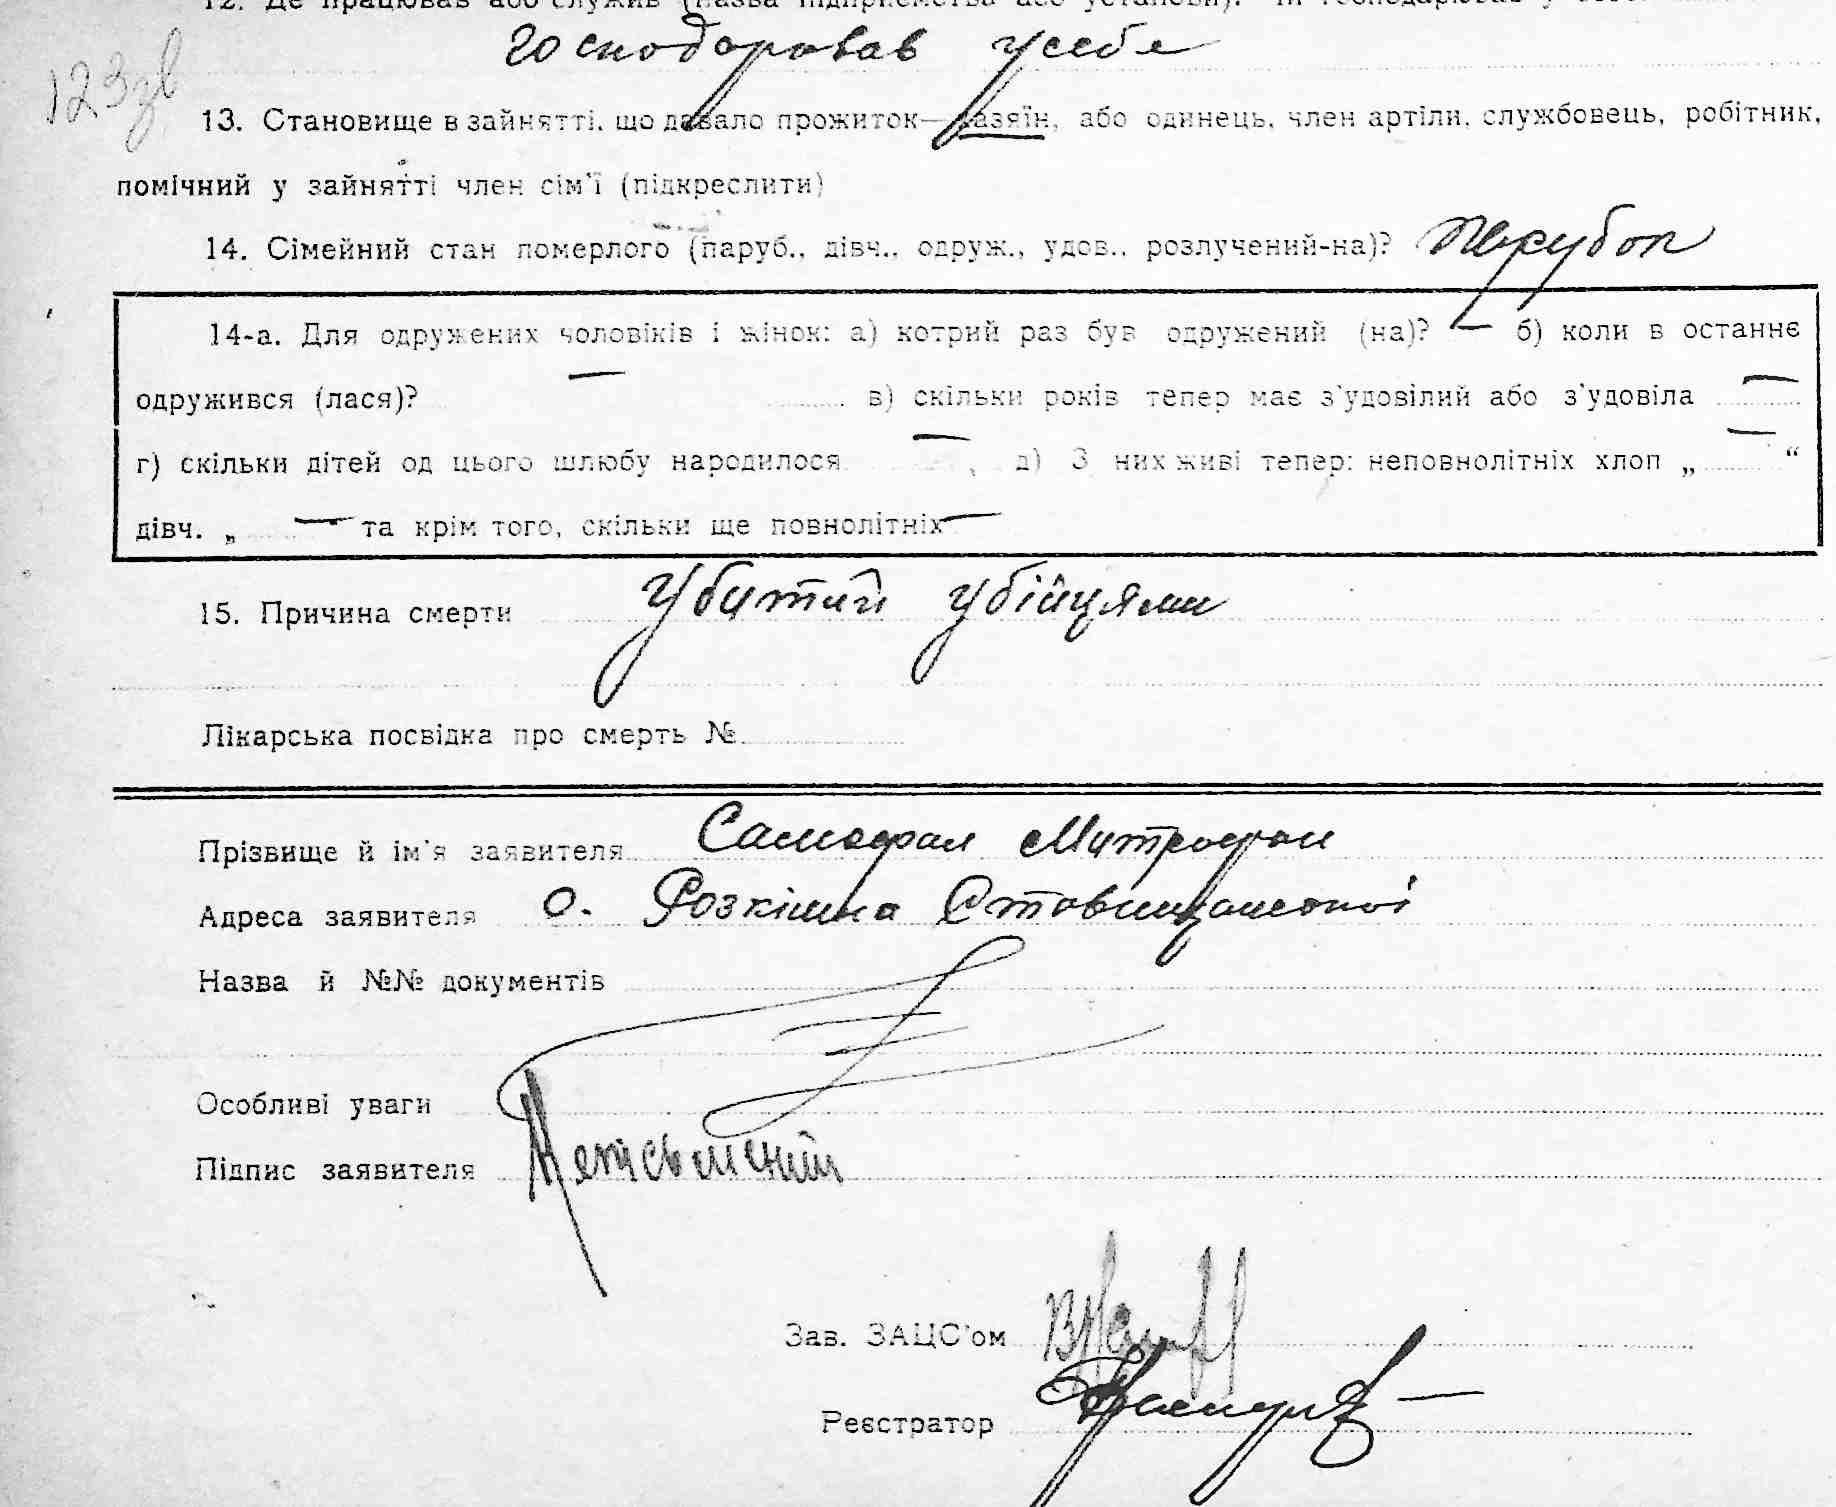 12. Де працював або служив (назва підприємства або установи). Чи господарював у себе
Господарував у себе
123зв
13. Становище в зайнятті, що давало прожиток—хазяїн, або одинець, член артіли, службовець, робітник,
помічний у зайнятті член сім'ї (підкреслити)
14. Сімейний стан померлого (паруб., дівч., одруж., удов., розлучений-на)? парубок
14-а. Для одружених чоловіків і жінок: а) котрий раз був одружений (на)? — б) коли в останнє
одружився (лася)? — в) скільки років тепер має з'удовілий або з'удовіла —
г) скільки дітей од цього шлюбу народилося — , д) З них живі тепер: неповнолітніх хлоп „ — “
дівч. „ — та крім того, скільки ще повнолітніх —
15. Причина смерти Убитий убійцями
Лікарська посвідка про смерть №
Прізвище й ім'я заявителя Самофал Митрофан
Адреса заявителя с. Розкішна Ставищанської
Назва й №№ документів
Особливі уваги
Підпис заявителя Неписьменний
Зав. ЗАЦС'ом
Реєстратор